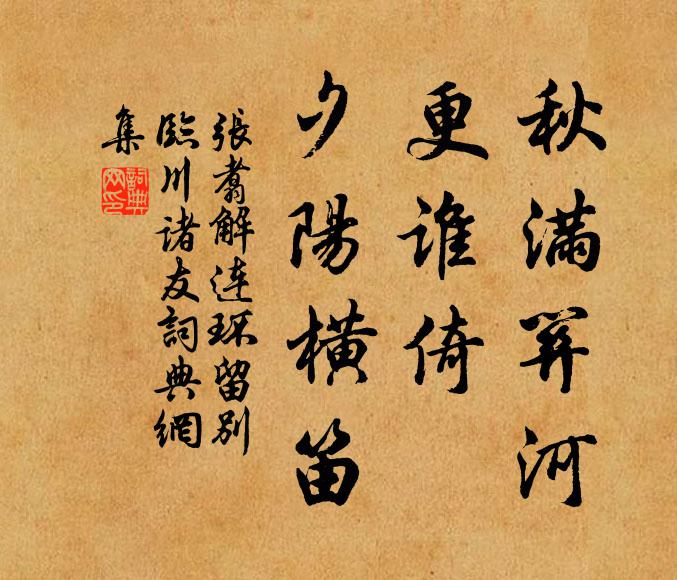 秋滿關河
更誰倚
夕陽橫笛
張翥解連环留別
臨川諸友詞典網
集
詞典
网印